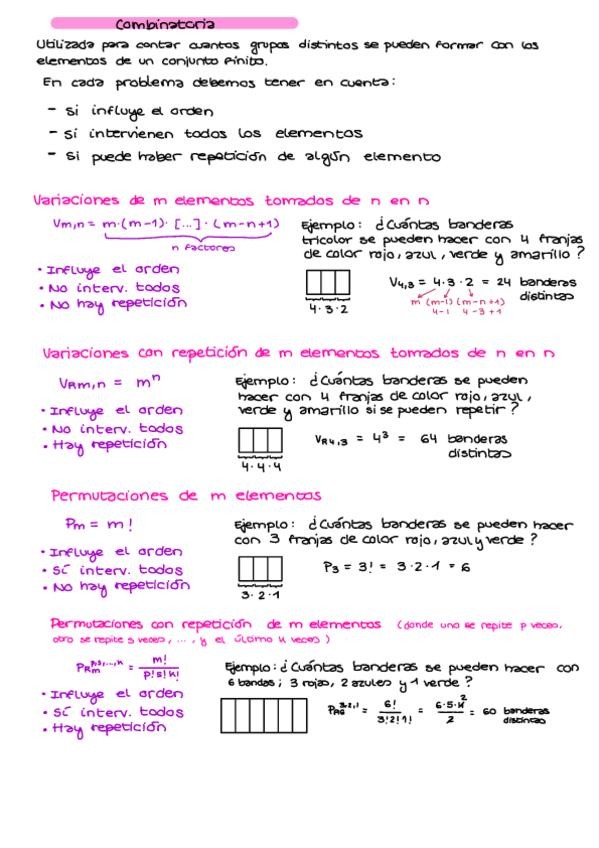 Combinatoria
Utilizada para contar cuantos grupos distintos se pueden formar con los
elementos de un conjunto finito.
En cada problema debemos tener en cuenta:
- Si influye el orden
- Si intervienen todos los elementos
- Si puede haber repetición de algún elemento
Variaciones de m elementos tomados de n en n
Vm,n = m·(m-1)· [...]· (m-n+1)
n factores
• Influye el orden
• No interv. todos
• No hay repetición
Ejemplo: ¿Cuántas banderas
tricolor se pueden hacer con 4 franjas
de color rojo, azul, verde y amarillo?
4·3·2
V4,3 = 4·3·2 = 24 banderas
distintas
m (m-1) (m-n+1)
4-1 4-3+1
Variaciones con repetición de m elementos tomados de n en n
VRm,n = mⁿ
• Influye el orden
• No interv. todos
• Hay repetición
Ejemplo: ¿Cuántas banderas se pueden
hacer con 4 franjas de color rojo, azul,
verde y amarillo si se pueden repetir?
4·4·4
VR4,3 = 4³ = 64 banderas
distintas
Permutaciones de m elementos
Pm = m!
• Influye el orden
• Sí interv. todos
• No hay repetición
Ejemplo: ¿Cuántas banderas se pueden hacer
con 3 franjas de color rojo, azul y verde?
3·2·1
P3 = 3! = 3·2·1 = 6
Permutaciones con repetición de m elementos (donde uno se repite p veces,
otro se repite s veces, ..., y el último k veces)
PRm^p,s,...,k = m! / p!s!k!
• Influye el orden
• Sí interv. todos
• Hay repetición
Ejemplo: ¿Cuántas banderas se pueden hacer con
6 bandas; 3 rojas, 2 azules y 1 verde?
PR6^3,2,1 = 6! / 3!2!1! = 6·5·4² / 2 = 60 banderas
distintas